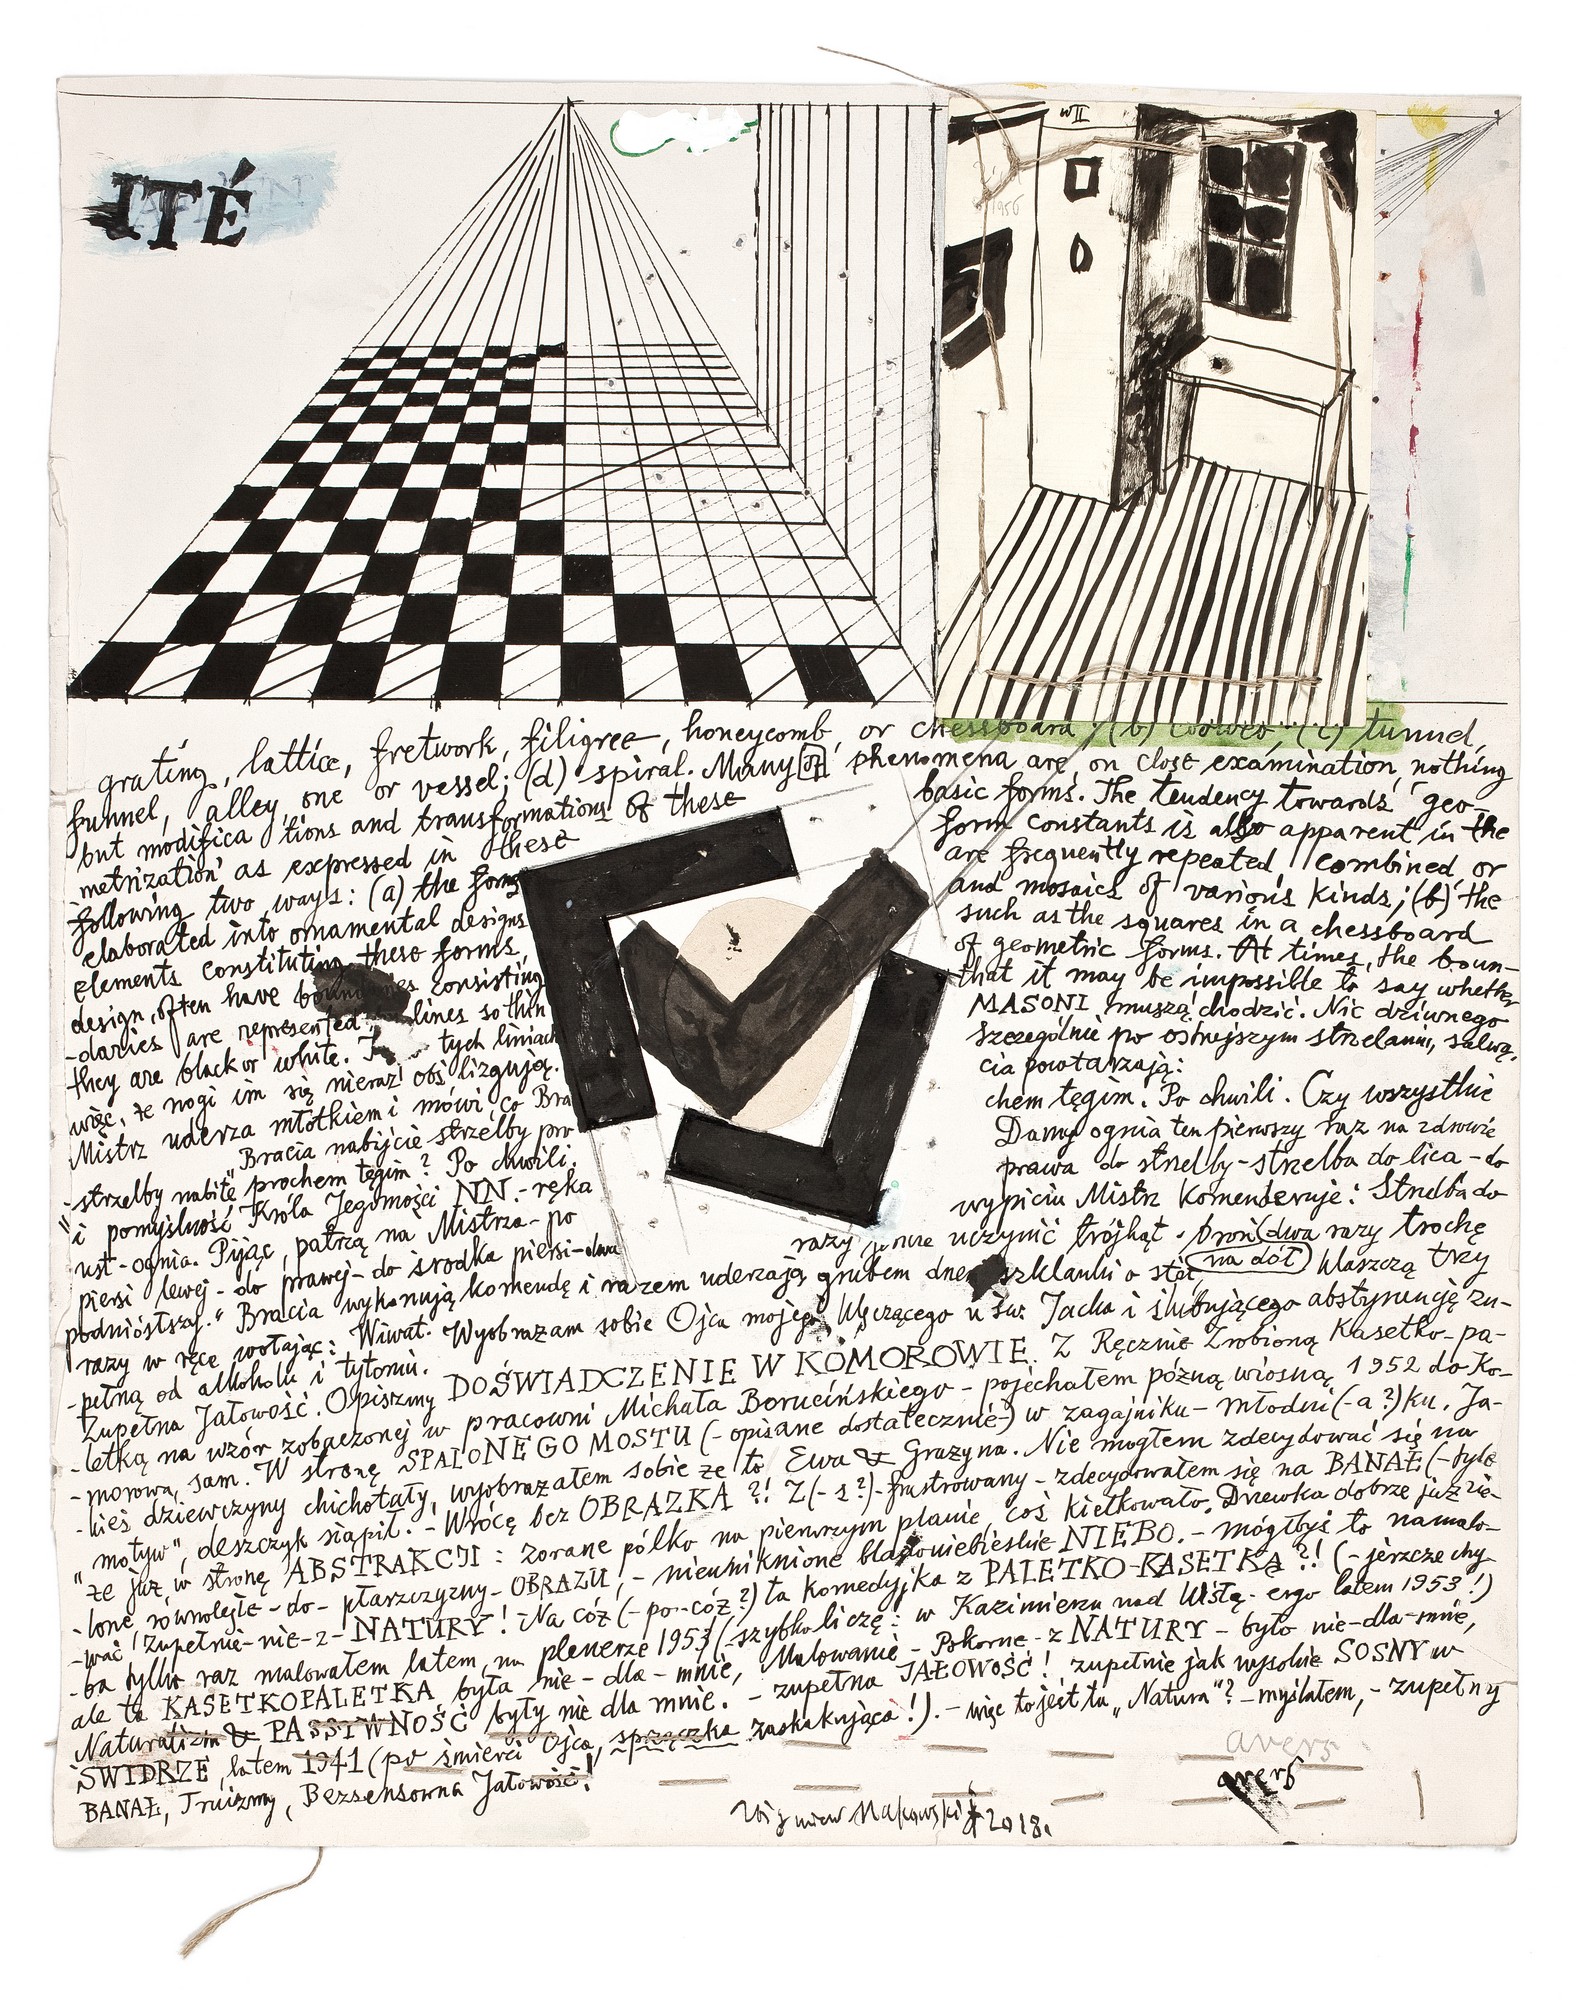 ITÉ
WII
1956
grating, lattice, fretwork, filigree, honeycomb, or chessboard; (b) cobweb; (c) tunnel,
funnel, alley cone or vessel; (d) spiral. Many of phenomena are, on close examination, nothing
but modifications and transformations of these basic forms. The tendency towards 'geo-
metrization' as expressed in these form constants is also apparent in the
following two ways: (a) the forms are frequently repeated, combined, or
elaborated into ornamental designs and mosaics of various kinds; (b) the
elements constituting these forms, such as the squares in a chessboard
design, often have boundaries consisting of geometric forms. At times, the boun-
-daries are represented lines so thin that it may be impossible to say whether
they are black or white. tych liniach MASONI muszą chodzić. Nic dziwnego
więc, że nogi im się nieraz obślizgują. Szczególnie po ostrzejszym strzelaniu, salwą.
Mistrz uderza młotkiem i mówi, co Bracia powtarzają:
Bracia nabijcie strzelby prochem tęgim. Po chwili. Czy wszystkie
-strzelby nabite prochem tęgim? Po chwili. Damy ognia ten pierwszy raz na zdrowie
"i pomyślność Króla Jegomości NN.-ręka prawa do strzelby-strzelba do lica-do
ust-ognia. Pijąc, patrzą na Mistrza-po wypiciu Mistrz komenderuje: Strzelba do
piersi lewej-do prawej-do środka piersi-dwa razy uczynić trójkąt. broń (dwa razy trochę
na dół
podniósłszy." Bracia wykonują komendę i razem uderzają grubem dnem szklanki o stół, klaszczą trzy
razy w ręce wołając: Wiwat. Wyobrażam sobie Ojca mojego klęczącego u św. Jacka i ślubującego abstynencję zu-
-pełną od alkoholu i tytoniu.
Zupełna Jałowość. Opiszmy DOŚWIADCZENIE W KOMOROWIE. Z Ręcznie Zrobioną Kasetko-pa-
-letką na wzór zobaczonej w pracowni Michała Borucińskiego - pojechałem późną wiosną, 1952 do Ko-
-morowa, sam. W stronę SPALONEGO MOSTU (-opisane dostatecznie-) w zagajniku-młodni(-a?)ku. Ja-
-kieś dziewczyny chichotały, wyobrażałem sobie że to Ewa & Grażyna. Nie mogłem zdecydować się na
"motyw", deszczyk siąpił. - Wrócę bez OBRAZKA ?! Z(-s?)-frustrowany - zdecydowałem się na BANAŁ (-było
że już w stronę ABSTRAKCJI : zorane pólko na pierwszym planie, coś kiełkowało. Drzewka dobrze już zie-
-lone, równoległe-do-płaszczyzny-OBRAZU, - nieuniknione bladoniebieskie NIEBO. - mógłbyś to namalo-
-wać zupełnie-nie-z-NATURY! - Na cóż (-po-cóż?) ta komedyjka z PALETKO-KASETKĄ ?! (-jeszcze chy-
-ba tylko raz malowałem latem, na plenerze 1953 (-szybko liczę: w Kazimierzu nad Wisłą - ergo latem 1953!)
ale ta KASETKOPALETKA była nie-dla-mnie, Malowanie - Pokorne-z NATURY - było nie-dla-mnie,
Naturalizm & PASSIWNOŚĆ były nie dla mnie. - zupełna JAŁOWOŚĆ! zupełnie jak wysokie SOSNY w
ŚWIDRZE, latem 1941 (po śmierci Ojca, sprzączka zaskakująca!). - więc to jest ta „Natura"? - myślałem, - zupełny
BANAŁ, Truizmy, Bezsensowna Jałowość!
avers
avers
Zbigniew Makowski 2018.